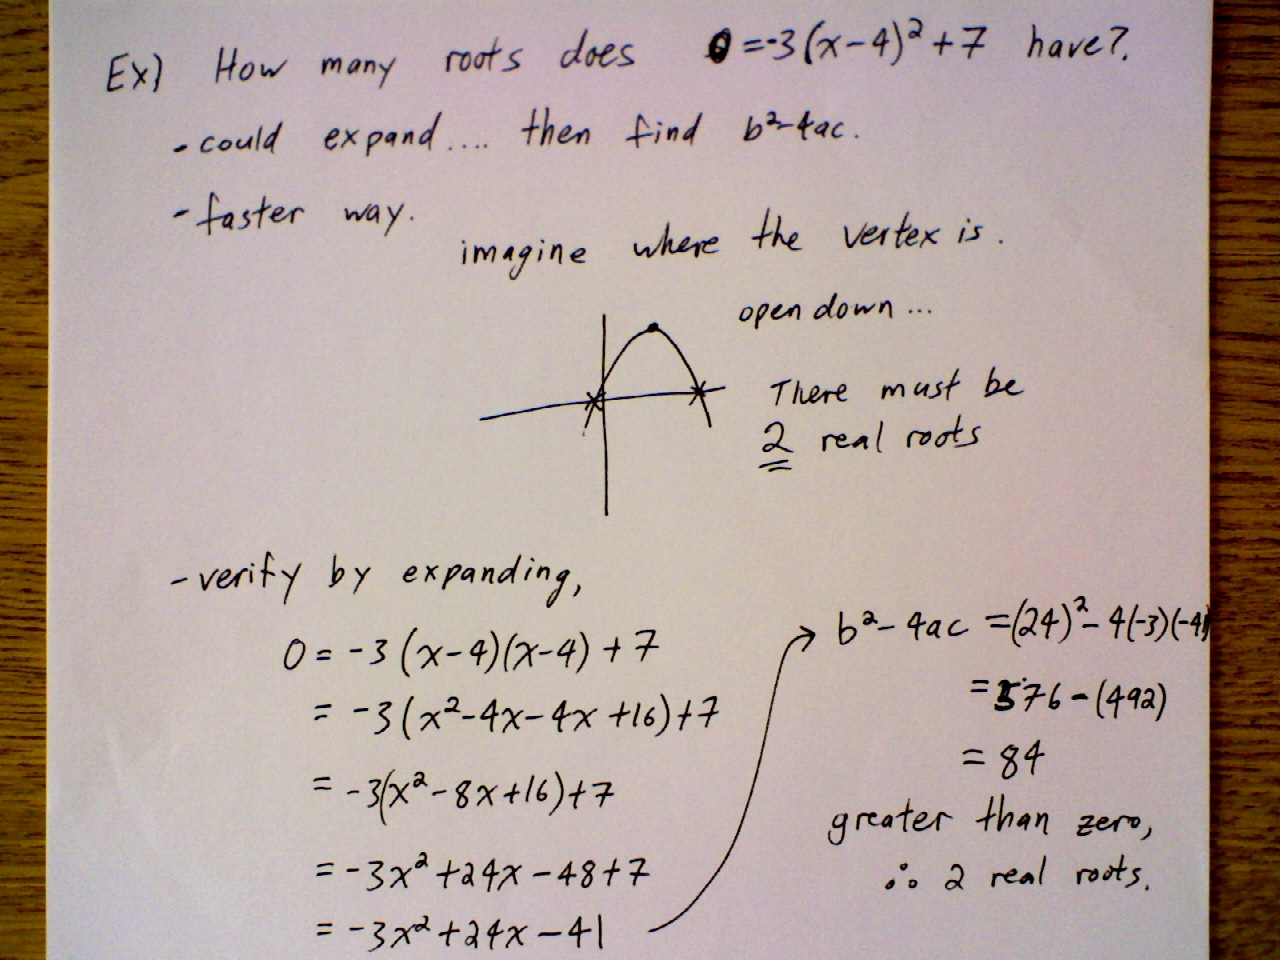 Ex) How many roots does 0 = -3(x-4)² + 7 have?.
- could expand.... then find b²-4ac.
- faster way.
imagine where the vertex is.
open down...
There must be
2 real roots
- verify by expanding,
0 = -3(x-4)(x-4) + 7
= -3(x²-4x-4x+16)+7
= -3(x²-8x+16)+7
= -3x²+24x-48+7
= -3x²+24x-41
b²-4ac = (24)²-4(-3)(-41)
= 576-(492)
= 84
greater than zero,
∴ 2 real roots.